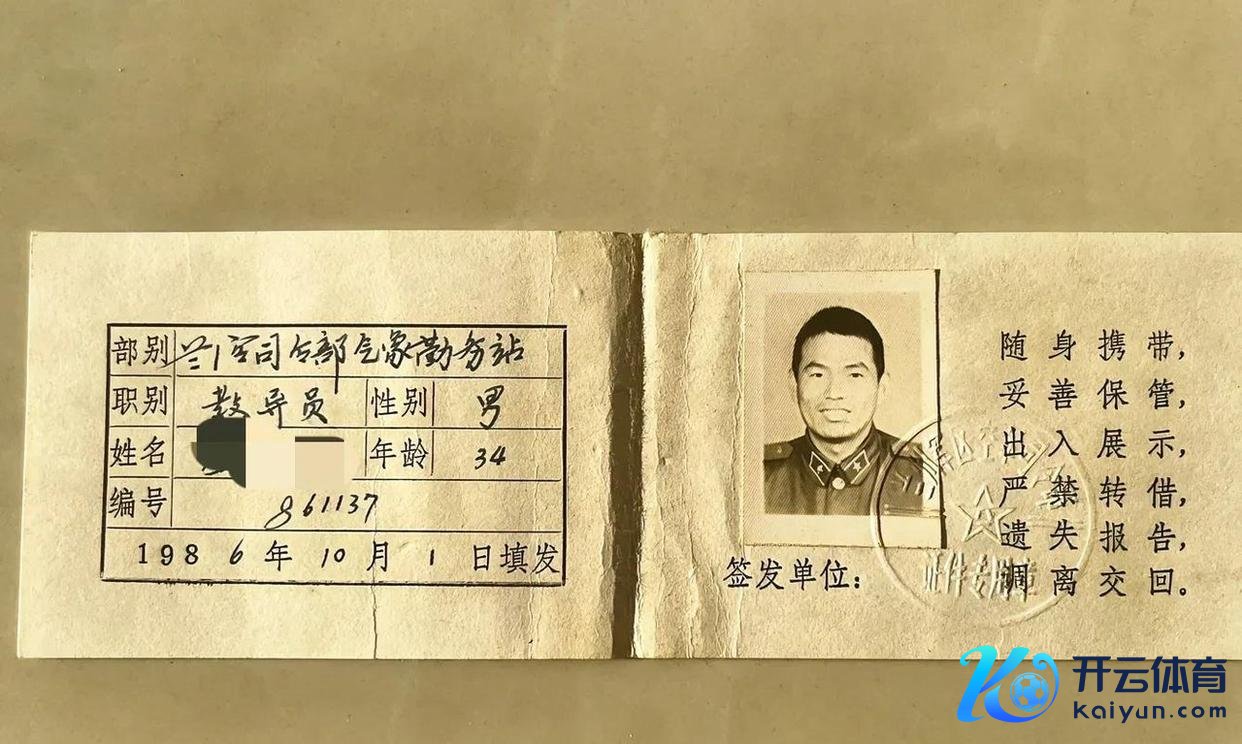 部别 兰空司令部气象勤务站
职别 教导员 性别 男
姓名 年龄 34
编号 861137
1986年10月1日填发
随身携带,
妥善保管,
出入展示,
严禁转借,
遗失报告,
调离交回。
签发单位:
证件专用章
开云体育
kaiyun.com